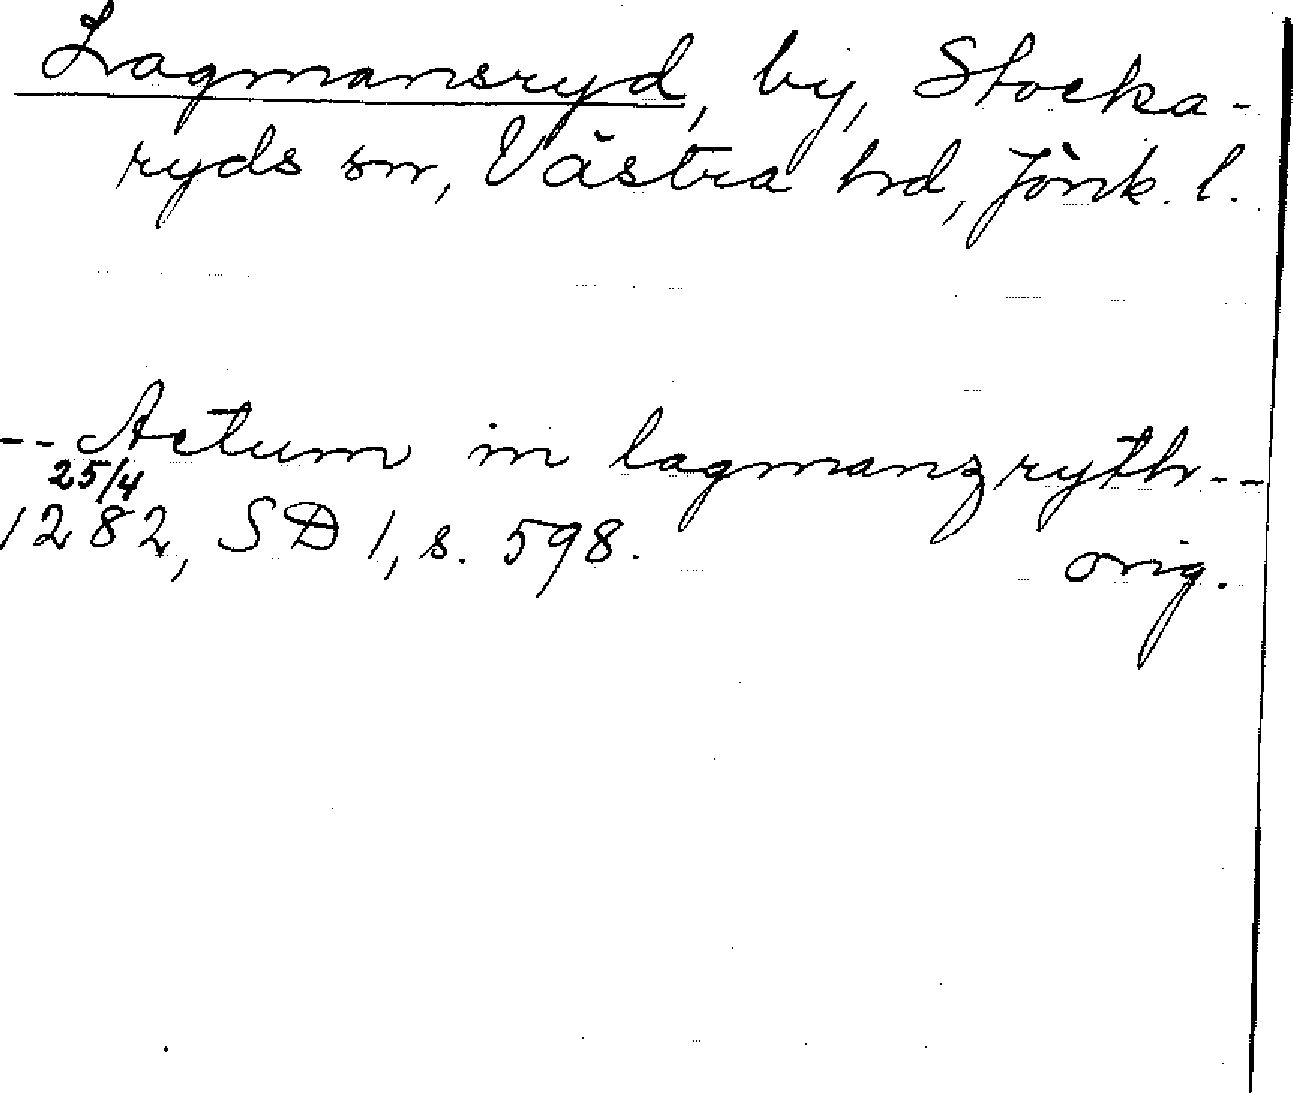 Lagmansryd, by, Stocka-
ryds sn, Västra hd, Jönk. l.
-- Actum in lagmanzryth --
25/4
1282, SD 1, s. 598.
orig.